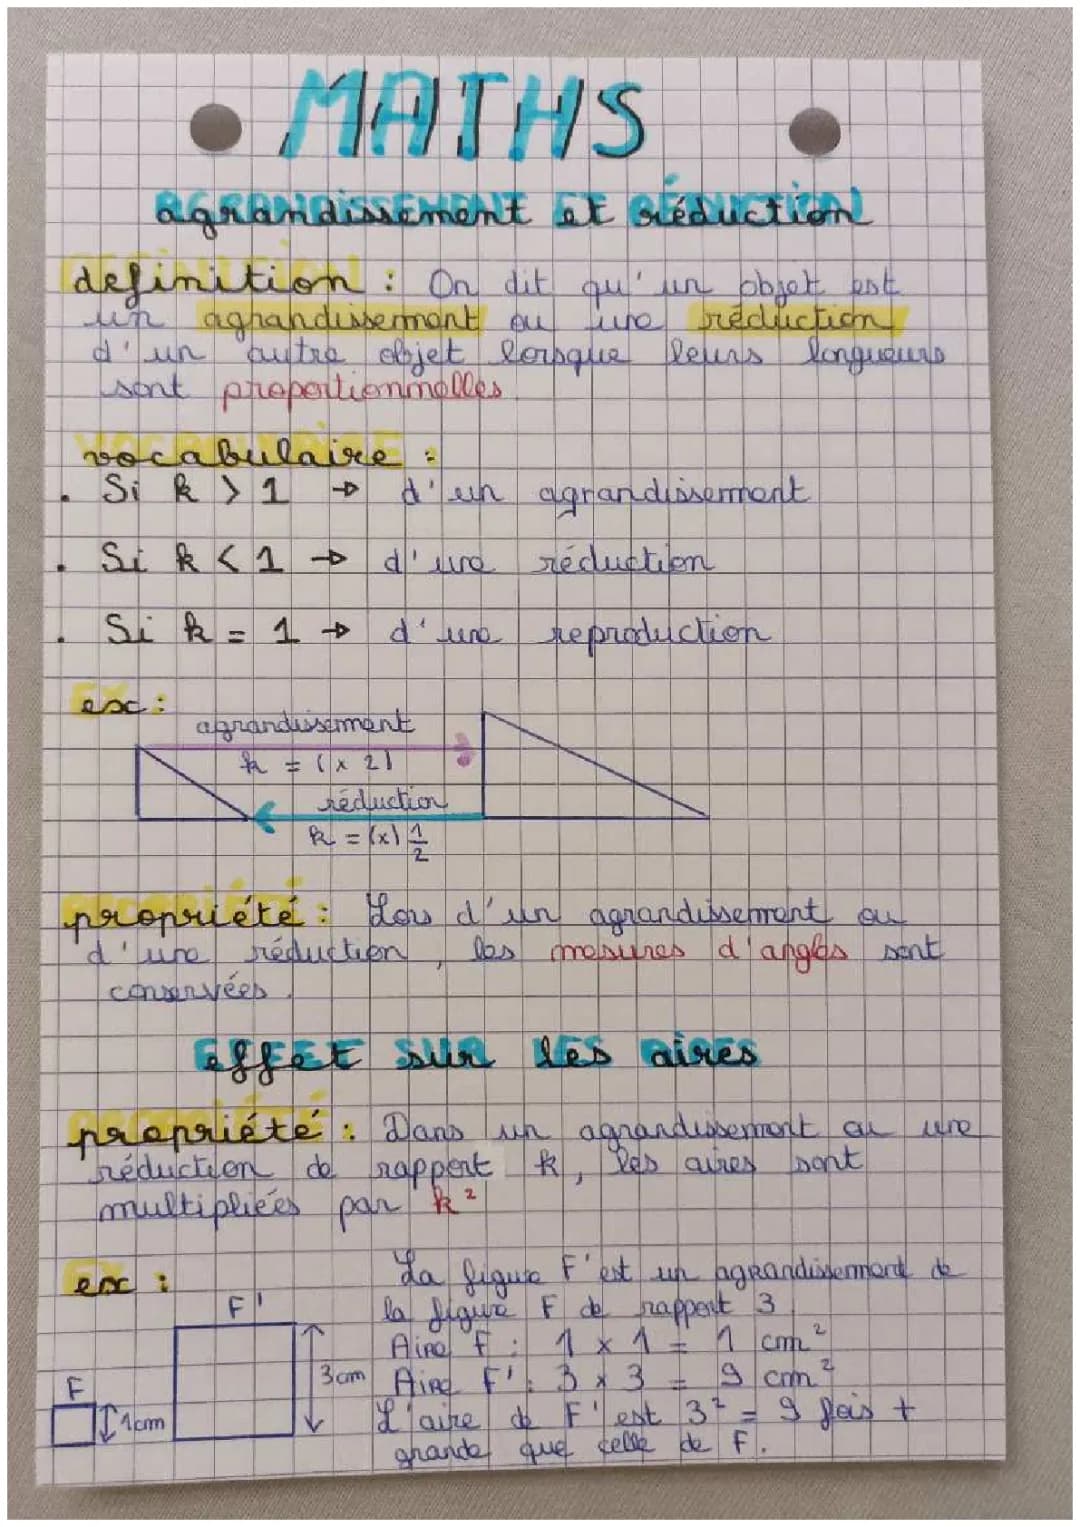 MATHS
agrandissement et réduction
definition : On dit qu'un objet est
un agrandissement ou une réduction
d'un autre objet lorsque leurs longueurs
sont proportionnelles.
vocabulaire :
. Si k > 1 → d'un agrandissement
. Si k < 1 → d'une réduction
. Si k = 1 → d'une reproduction
ex :
agrandissement
k = (x 2)
réduction
k = (x) 1/2
propriété : Lors d'un agrandissement ou
d'une réduction, les mesures d'angles sont
conservées.
effet sur les aires
propriété : Dans un agrandissement ou une
réduction de rapport k, les aires sont
multipliées par k²
ex :
La figure F' est un agrandissement de
la figure F de rapport 3
Aire F : 1 x 1 = 1 cm²
Aire F' : 3 x 3 = 9 cm²
L'aire de F' est 3² = 9 fois +
grande que celle de F.
F'
3cm
F
1cm